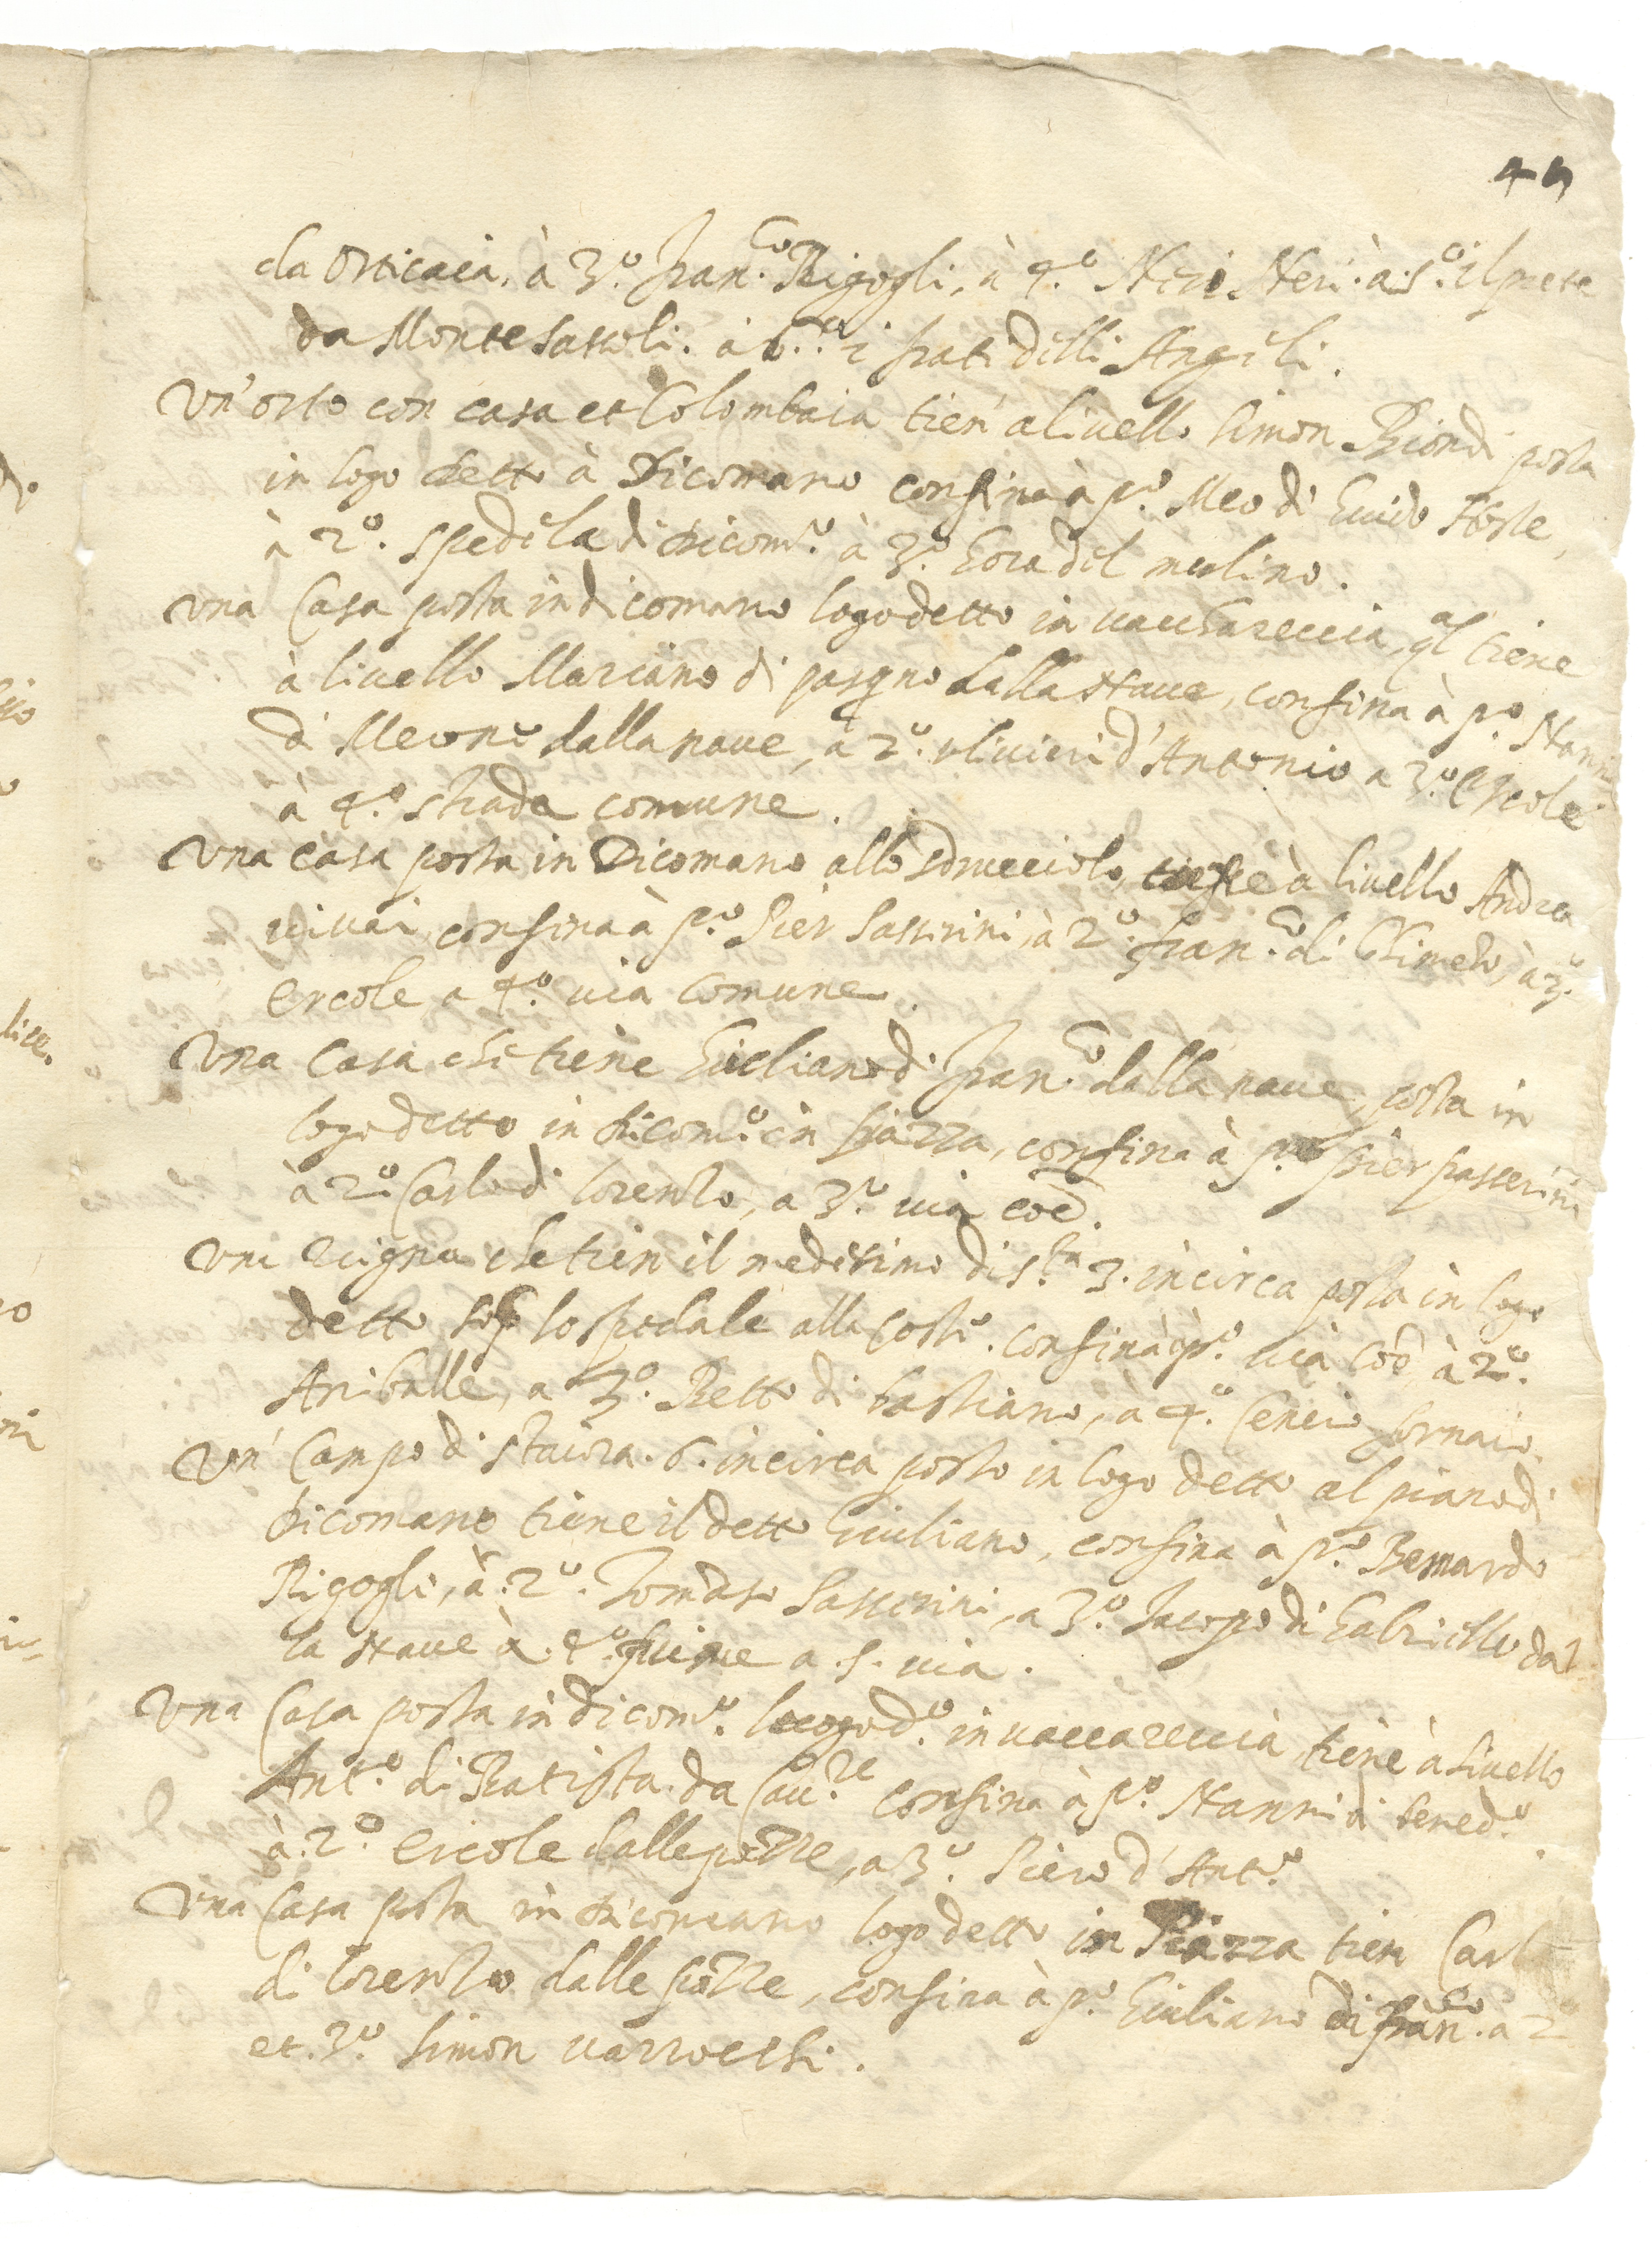 45
da Orticaia, à 3.º Fran.co Rigogli, à 4.º Neri Neri. à 5.º il prete
da Monte sassoli. à 6.º i frati delli Angeli.
Un' orto con casa et Colombaia tien' a livello Simon Biondi posta
in logo detto à Dicomano confina à p.º Meo di Guido Hoste,
à 2.º spedela di dicom.º à 3.º Gora del mulino.
Una Casa posta in dicomano logo detto in vacchareccia, qal tiene
à livello Mariano di pasqno dalla Nave, confina à p.º Nanni
di Meone dalla nave, à 2.º ulivieri d'Antonio a 3.º Ercole
à 4.º strada comune.
Una casa posta in Dicomano allo sdrucciolo, tiene à livello Andrea
vivai, confina à p.º Pier Passerini, à 2.º fran.co di Chimeto, à 3.º
Ercole a 4.º via comune.
Una Casa che tiene Giuliano di Fran.co dalla nave, posta in
logo detto in dicom.º in piazza, confina à p.º pier passerini
à 2.º Carlo di lorenzo, a 3.º via coe.
Una vigna che tien il medesimo di st.ra 3. in circa posta in logo
detto sop.a lo spedale alla Coste. confina à p.º via coe, à 2.º
Aniballe, a 3.º Betto di bastiano, à 4.º Cencio fornaio.
Un' Campo di staiora .6. incirca posto in logo detto al piano di
dicomano tiene il detto Giuliano, confina à p.º Bernardo
Rigogli, à .2.º Tomaso Passerini, a 3.º Iacopo di Gabriello dal
la Nave à 4.º fiume a .5. via.
Una Casa posta in dicom.º locogo d.º in vaccareccia, tiene à livello
Ant.º di Batista da Cav.re confina à p.º Nanni di bened.º
à .2.º Ercole dalle pozze, a 3.º Piero d' Ant.º
Una Casa posta in dicomano logo detto in Piazza tien Carlo
di lorenzo dalle pozze, confina à p.º Giuliano di fran.co a 2º
et. 3.º Simon varrocchi.